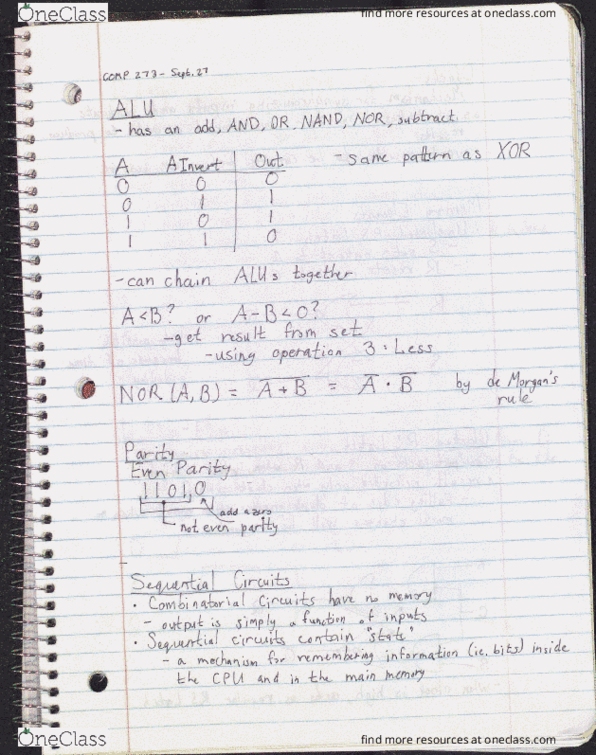 OneClass
find more resources at oneclass.com
COMP 273 - Sept. 27
ALU
- has an add, AND, OR, NAND, NOR, subtract
A AInvert Out - same pattern as XOR
0 0 0
0 1 1
1 0 1
1 1 0
- can chain ALUs together
A<B? or A-B<0?
- get result from set
- using operation 3: Less
NOR (A,B) = \overline{A+B} = \overline{A} · \overline{B} by de Morgan's
rule
Parity
Even Parity
11010
add a zero
not even parity
Sequential Circuits
• Combinatorial Circuits have no memory
- output is simply a function of inputs
• Sequential circuits contain "state"
- a mechanism for remembering information (ie. bits) inside
the CPU and in the main memory
OneClass
find more resources at oneclass.com